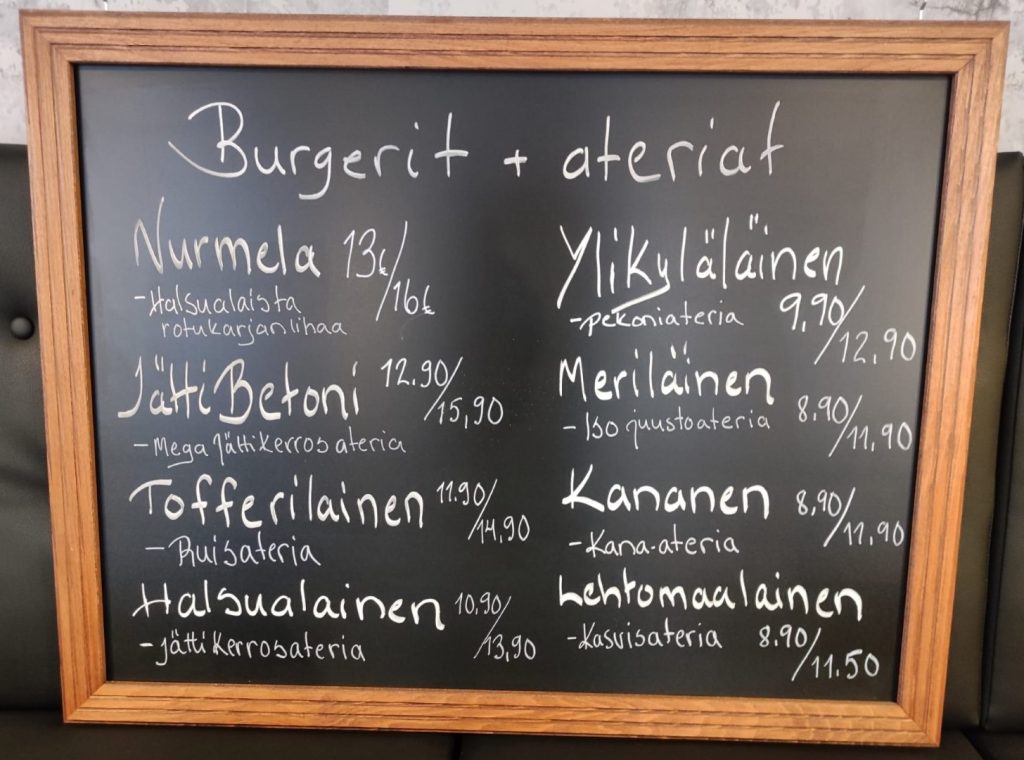 Burgerit + ateriat
Nurmela 13€/16€
-Halsualaista
rotukarjanlihaa
JättiBetoni 12.90/15,90
-Mega Jättikerrosateria
Tofferilainen 11.90/14,90
-Ruisateria
Halsualainen 10,90/13,90
-Jättikerrosateria
Ylikyläläinen
-pekoniateria 9,90/12,90
Meriläinen
-Iso juustoateria 8,90/11,90
Kananen 8,90/11,90
-Kana-ateria
Lehtomaalainen
-Kasvisateria 8.90/11.50